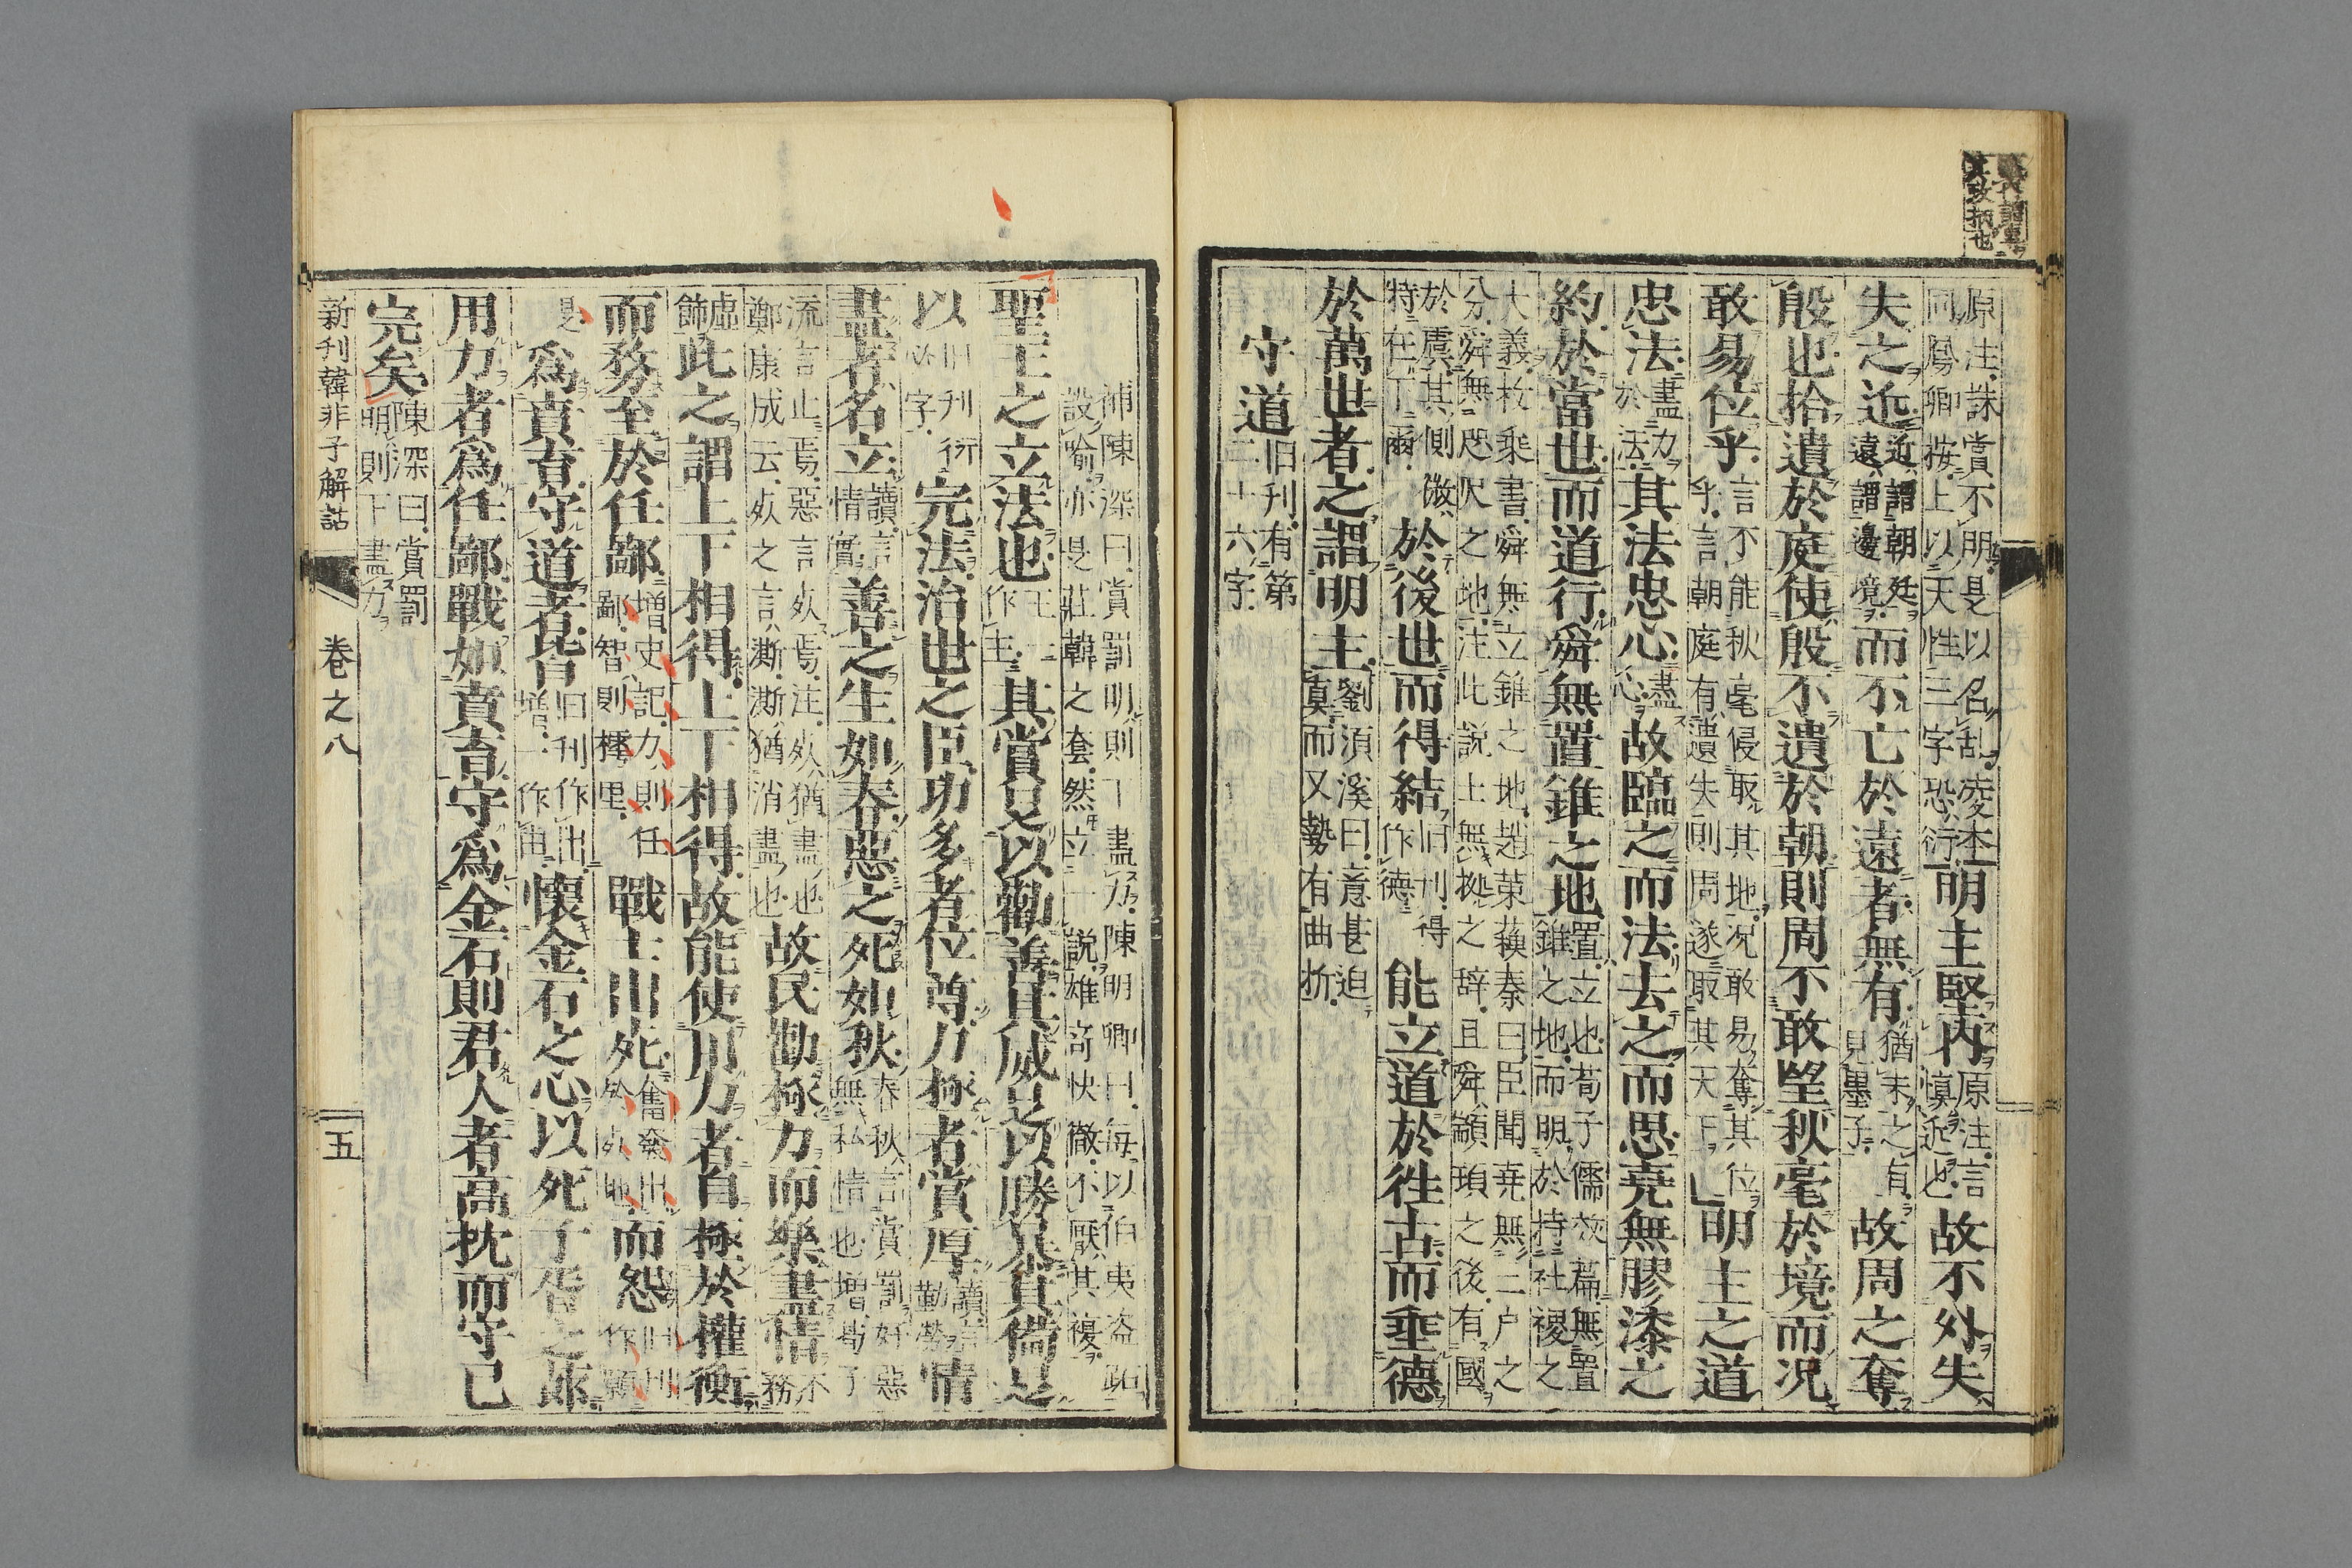 原注誅賞不明是以名乱凌本
同鳳卿按上以天性三字恐衍
明主堅内
原注言
慎近也
故不外失
失之近
近謂朝廷
遠謂邊境
而不亡於遠者無有
猶未之有
見墨子
故周之奪
殷也拾遺於庭使殷不遺於朝則周不敢望秋毫於境而况
敢易位乎
言不能秋毫侵取其地况敢易奪其位
乎言朝庭有遺失則周遂取其天下
明主之道
忠法
盡力
於法
其法忠心
盡
心
故臨之而法去之而思尭無膠漆之
約於當世而道行舜無置錐之地
置立也荀子儒效篇無置
錐之地而明於持社稷之
大義枚乘書舜無立錐之地趙策蘓秦曰臣聞尭無三户之
分舜無咫尺之地注此説土無㩀之辞且舜顓頊之後有國
於虞其側微
特在下爾
於後世而得結
旧刊得
作德
能立道於徃古而垂德
於萬世者之謂明主
劉湏溪曰意甚迫
真而又勢有曲折
守道
旧刊有第
二十六字
補陳深曰賞罰明則下盡力陳明卿曰每以伯夷盗跖
設喻亦是莊韓之套然立一説雄奇快徹不厭其複
聖王之立法也
王一
作主
其賞足以勸善其威足以勝暴其備足
以
旧刊衍
必字
完法治世之臣功多者位尊力極者賞厚
讀言
勤勞
情
盡者名立
讀言
情實
善之生如春惡之死如秋
春秋言賞罰好惡
無私情也増荀子
流言止焉惡言死焉注死猶盡也
鄭康成云死之言澌澌猶消盡也
故民勸極力而樂盡情
不務
虚飾
此之謂上下相得上下相得故能使用力者自極於權衡
而務至於任鄙
増史記力則任
鄙智則樗里
戰士出死
奮發出
於死地
而怨
旧刊
作願
是
爲賁育守道者皆
旧刊作出
増一作由
懷金石之心以死子胥之節
用力者爲任鄙戰如賁育守爲金石則君人者高枕而守已
完矣
陳深曰賞罰
明則下盡力
新刊韓非子解詁
卷之八
五